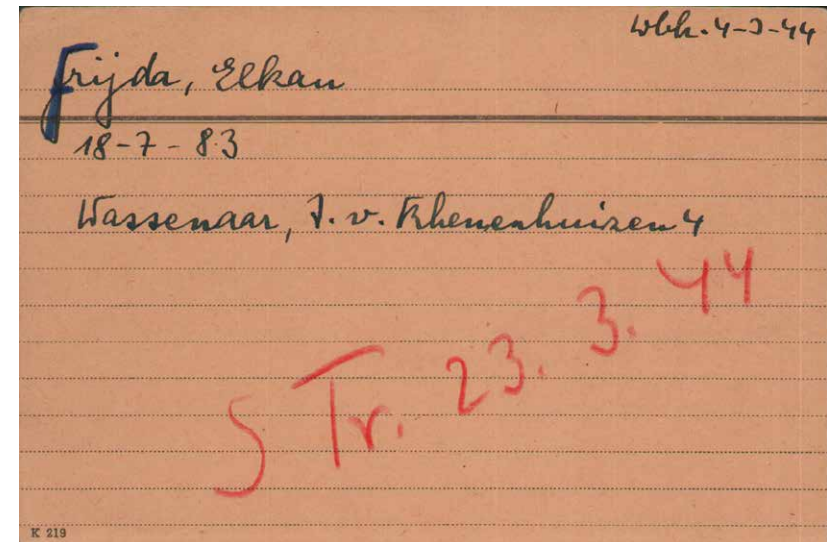 Wbk. 4-3-44
Frijda, Elkan
18-7-83
Wassenaar, J. v. Rhenenhuizen 4
S Tr. 23. 3. 44
K 219